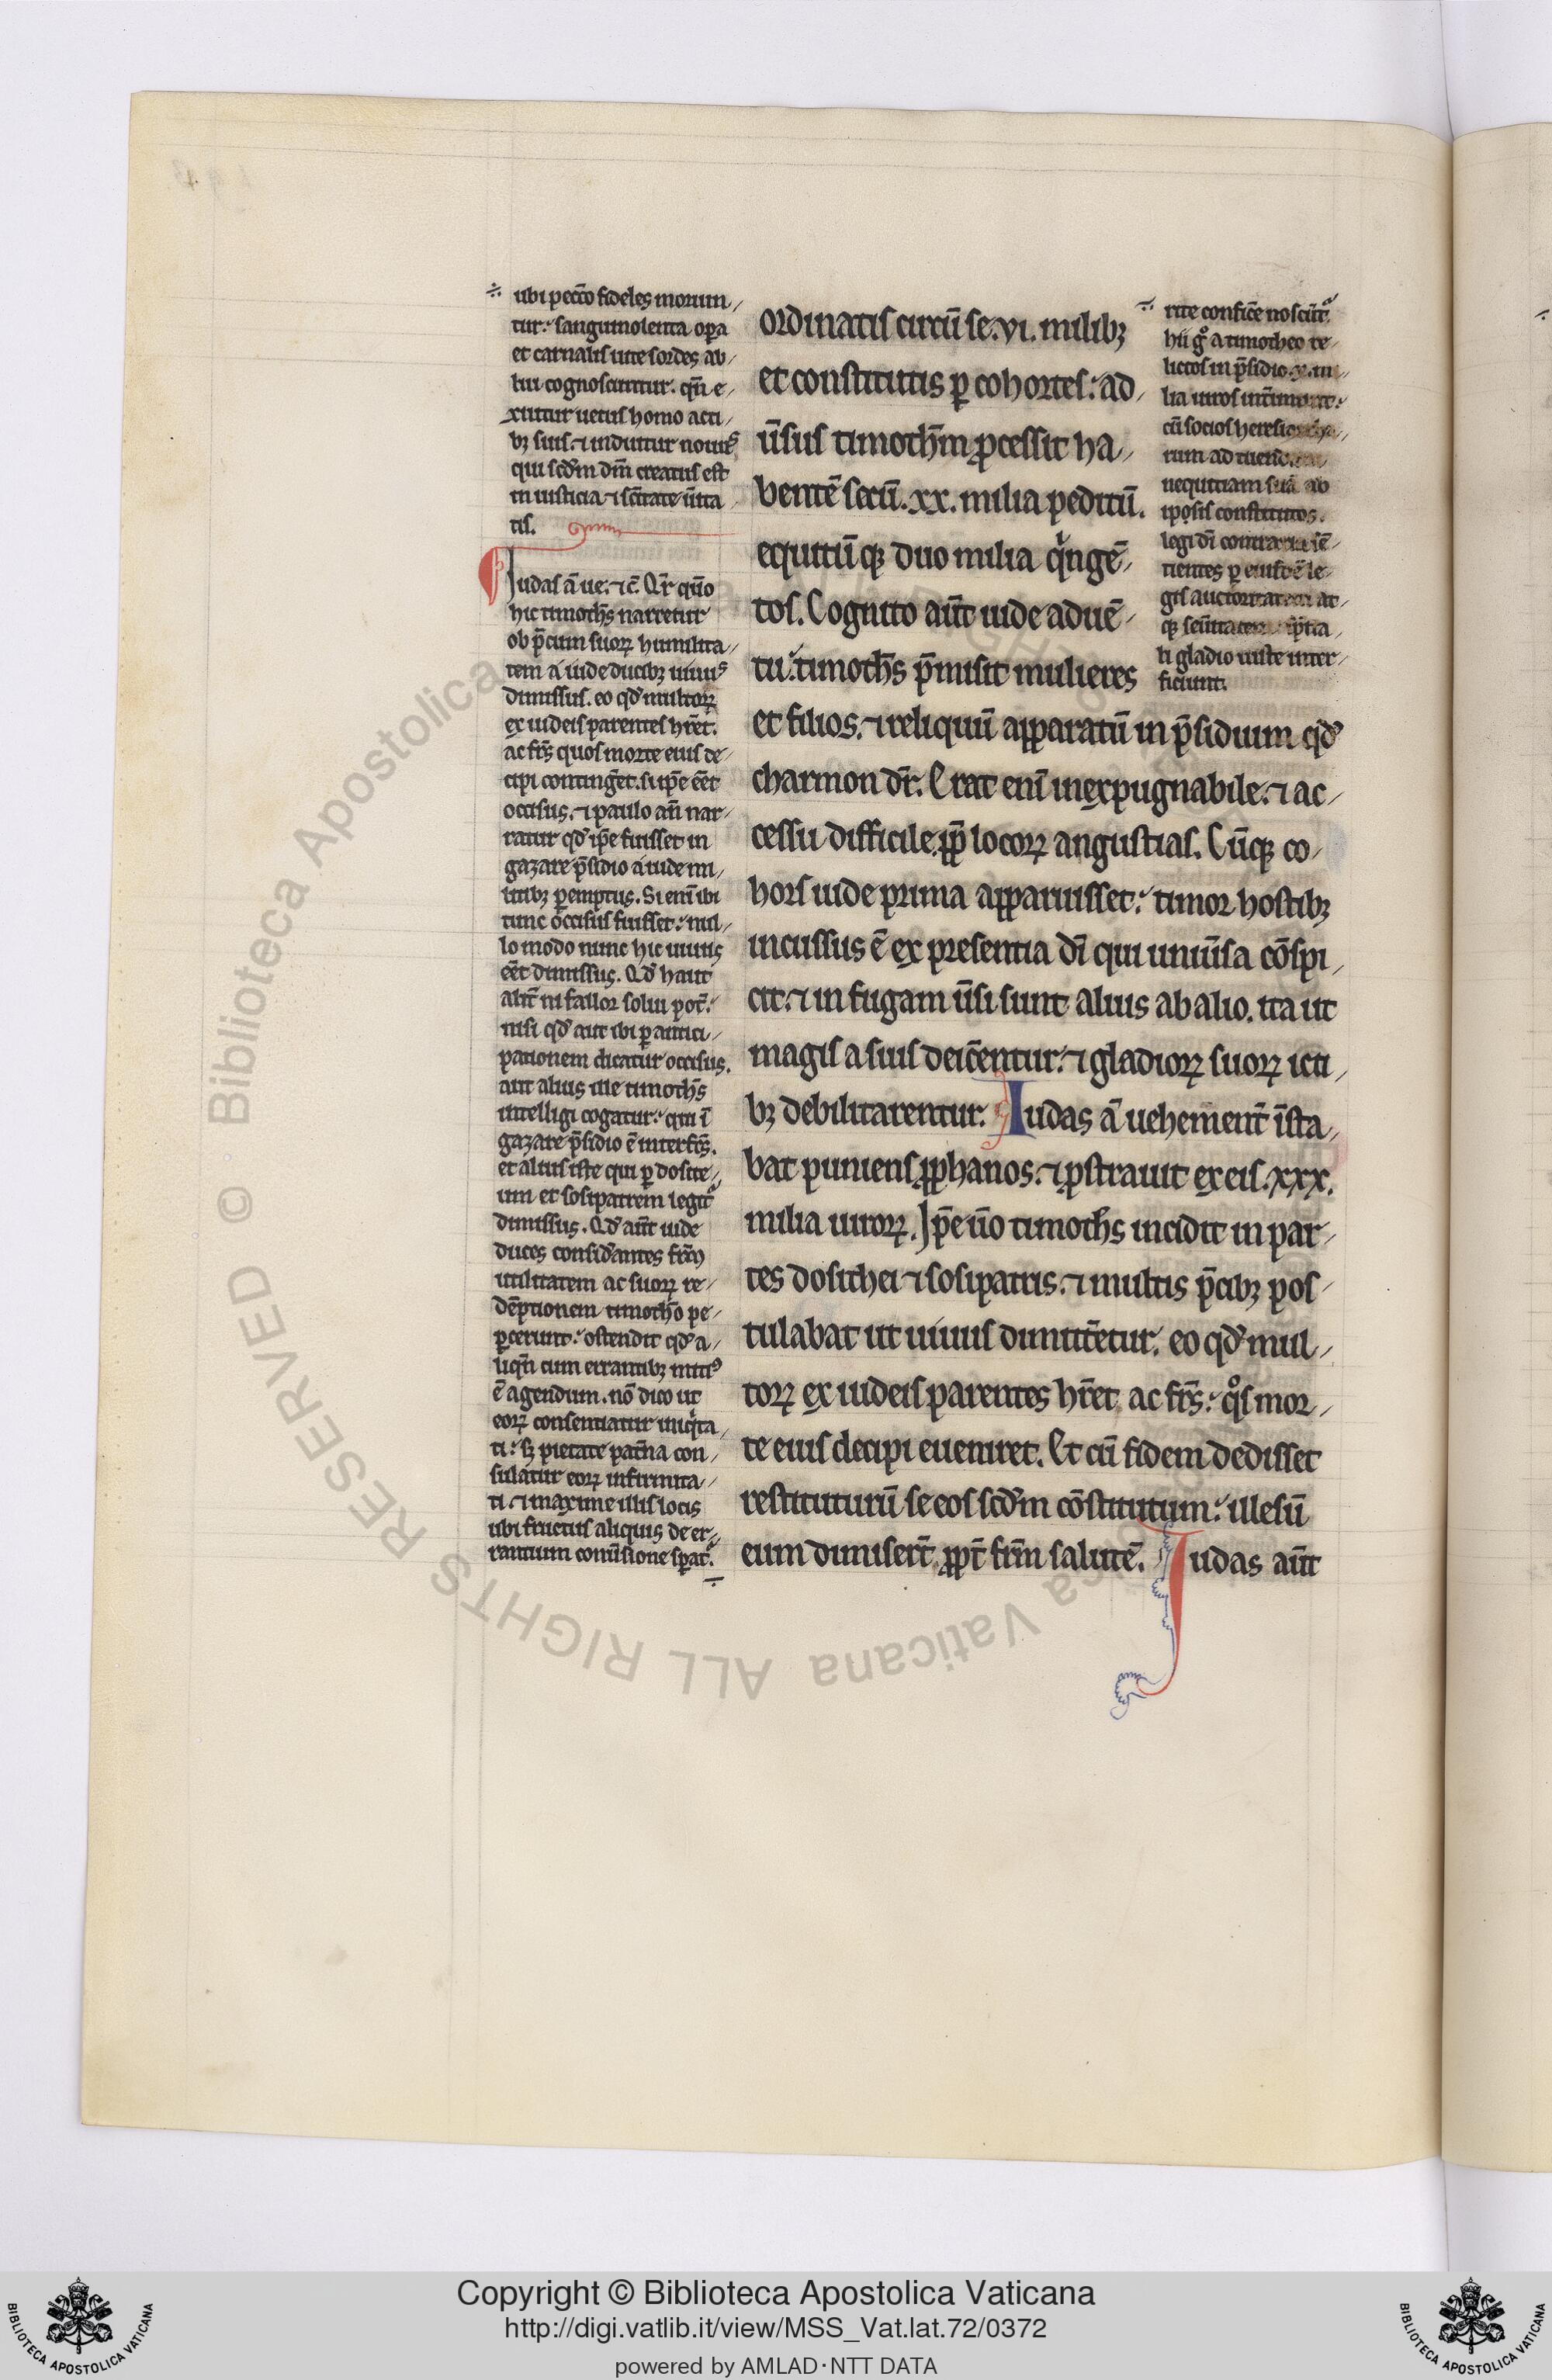 ubi pctō fideles moriun
tur: sanguinolenta oꝑa
et carnalis uite sordes ab
lui cognoscuntur. qn̄ e
xuitur uetus homo acti
bꝫ suis. ⁊ induitur nouus
qui scd̄m dm̄ creatus est
in iusticia ⁊ sc̄itate ūita
tis.
Iudas ā ue. ⁊c̄. Qr̄r quō
hic timoth̄s narretur
ob p̄cum suoꝝ humilita
tem a iude ducibꝫ uiuus
dimissus. eo qd̓ multoꝝ
ex iudeis parentes hr̄et.
ac frs̄ quos morte eius de
cipi continḡet. si ip̄e eēt
occisus. ⁊ paulo an̄ nar
ratur qd̓ ip̄e fuisset in
gazare p̄sidio a iude mi
litibꝫ ꝑemptus. Si enī ibi
tunc occisus fuisset: nul
lo modo nunc hic uiuus
eēt dimissus. Qd̓ haut
alit̄ ni fallor solui pot̄:
nisi qd̓ aut ibi ꝑ antici
pationem dicatur occisus.
aut alius ille timoth̄s
intelligi cogatur: qui ī
gazare p̄sidio ē interfc̄s.
et alius iste qui ꝑ dosite
um et sosipatrem legit᷑
dimissus. Qd̓ aūt iude
duces consid̓antes frm̄
utilitatem ac suoꝝ re
dēptionem timoth̄o pe
ꝑcerunt: ostendit qd̓ a
liqn̄ cum errantibꝫ mitiꝰ
ē agendum. nō dico ut
eoꝝ consentiatur iniqͥta
ti: sꝫ pietate pat̄na con
sulatur eoꝝ infirmita
ti. ⁊ maxime illis locis
ubi fructus aliquis de er
rantium conūsione sꝑat᷑.
ordinatis circū se .vi. milibꝫ
et constitutis ꝑ cohortes: ad
ūsus timoth̄m ꝓcessit ha
bentē secū .xx. milia peditū.
equitūqꝫ duo milia qͥngē
tos. Cognito aūt iude aduē
tu: timoth̄s p̄misit mulieres
et filios. ⁊ reliquū apparatū in p̄sidium qd̓
charmon dr̄. Erat enī inexpugnabile. ⁊ ac
cessu difficile ꝓpt̄ locoꝝ angustias. Cūqꝫ co
hors iude prima apparuisset: timor hostibꝫ
incussus ē ex presentia dī qui uniūsa cōspi
cit. ⁊ in fugam ūsi sunt alius ab alio. ita ut
magis a suis deic̄entur. ⁊ gladioꝝ suoꝝ icti
bꝫ debilitarentur. Iudas ā uehement̄ īsta
bat puniens ꝓphanos. ⁊ ꝓstrauit ex eis .xxx.
milia uiroꝝ. Ip̄e ūo timoth̄s incidit in par
tes dosithei ⁊ sosipatris. ⁊ multis p̄cibꝫ pos
tulabat ut uiuus dimitt̄etur. eo qd̓ mul
toꝝ ex iudeis parentes hr̄et ac frs̄: qͦs mor
te eius decipi eueniret. Et cū fidem dedisset
restituturū se eos scd̄m cōstitutum: illesū
eum dimisert̄ ꝓpt̄ frm̄ salutē. Iudas aūt
rite confic̄e noscūt᷑
hii gͦ a timotheo re
lictos in p̄sidio .x. mi
lia uiros
cū socios
rum ad
nequitiam suā ab
ip̄osis constitutos.
legi dī sē
tientes ꝑ le
gis auctoritatem at
qꝫ
li gladio iuste inter
ficiunt.
Copyright © Biblioteca Apostolica Vaticana
http://digi.vatlib.it/view/MSS_Vat.lat.72/0372
powered by AMLAD·NTT DATA
BIBLIOTECA APOSTOLICA VATICANA
BIBLIOTECA APOSTOLICA VATICANA
© Biblioteca Apostolica Vaticana ALL RIGHTS RESERVED